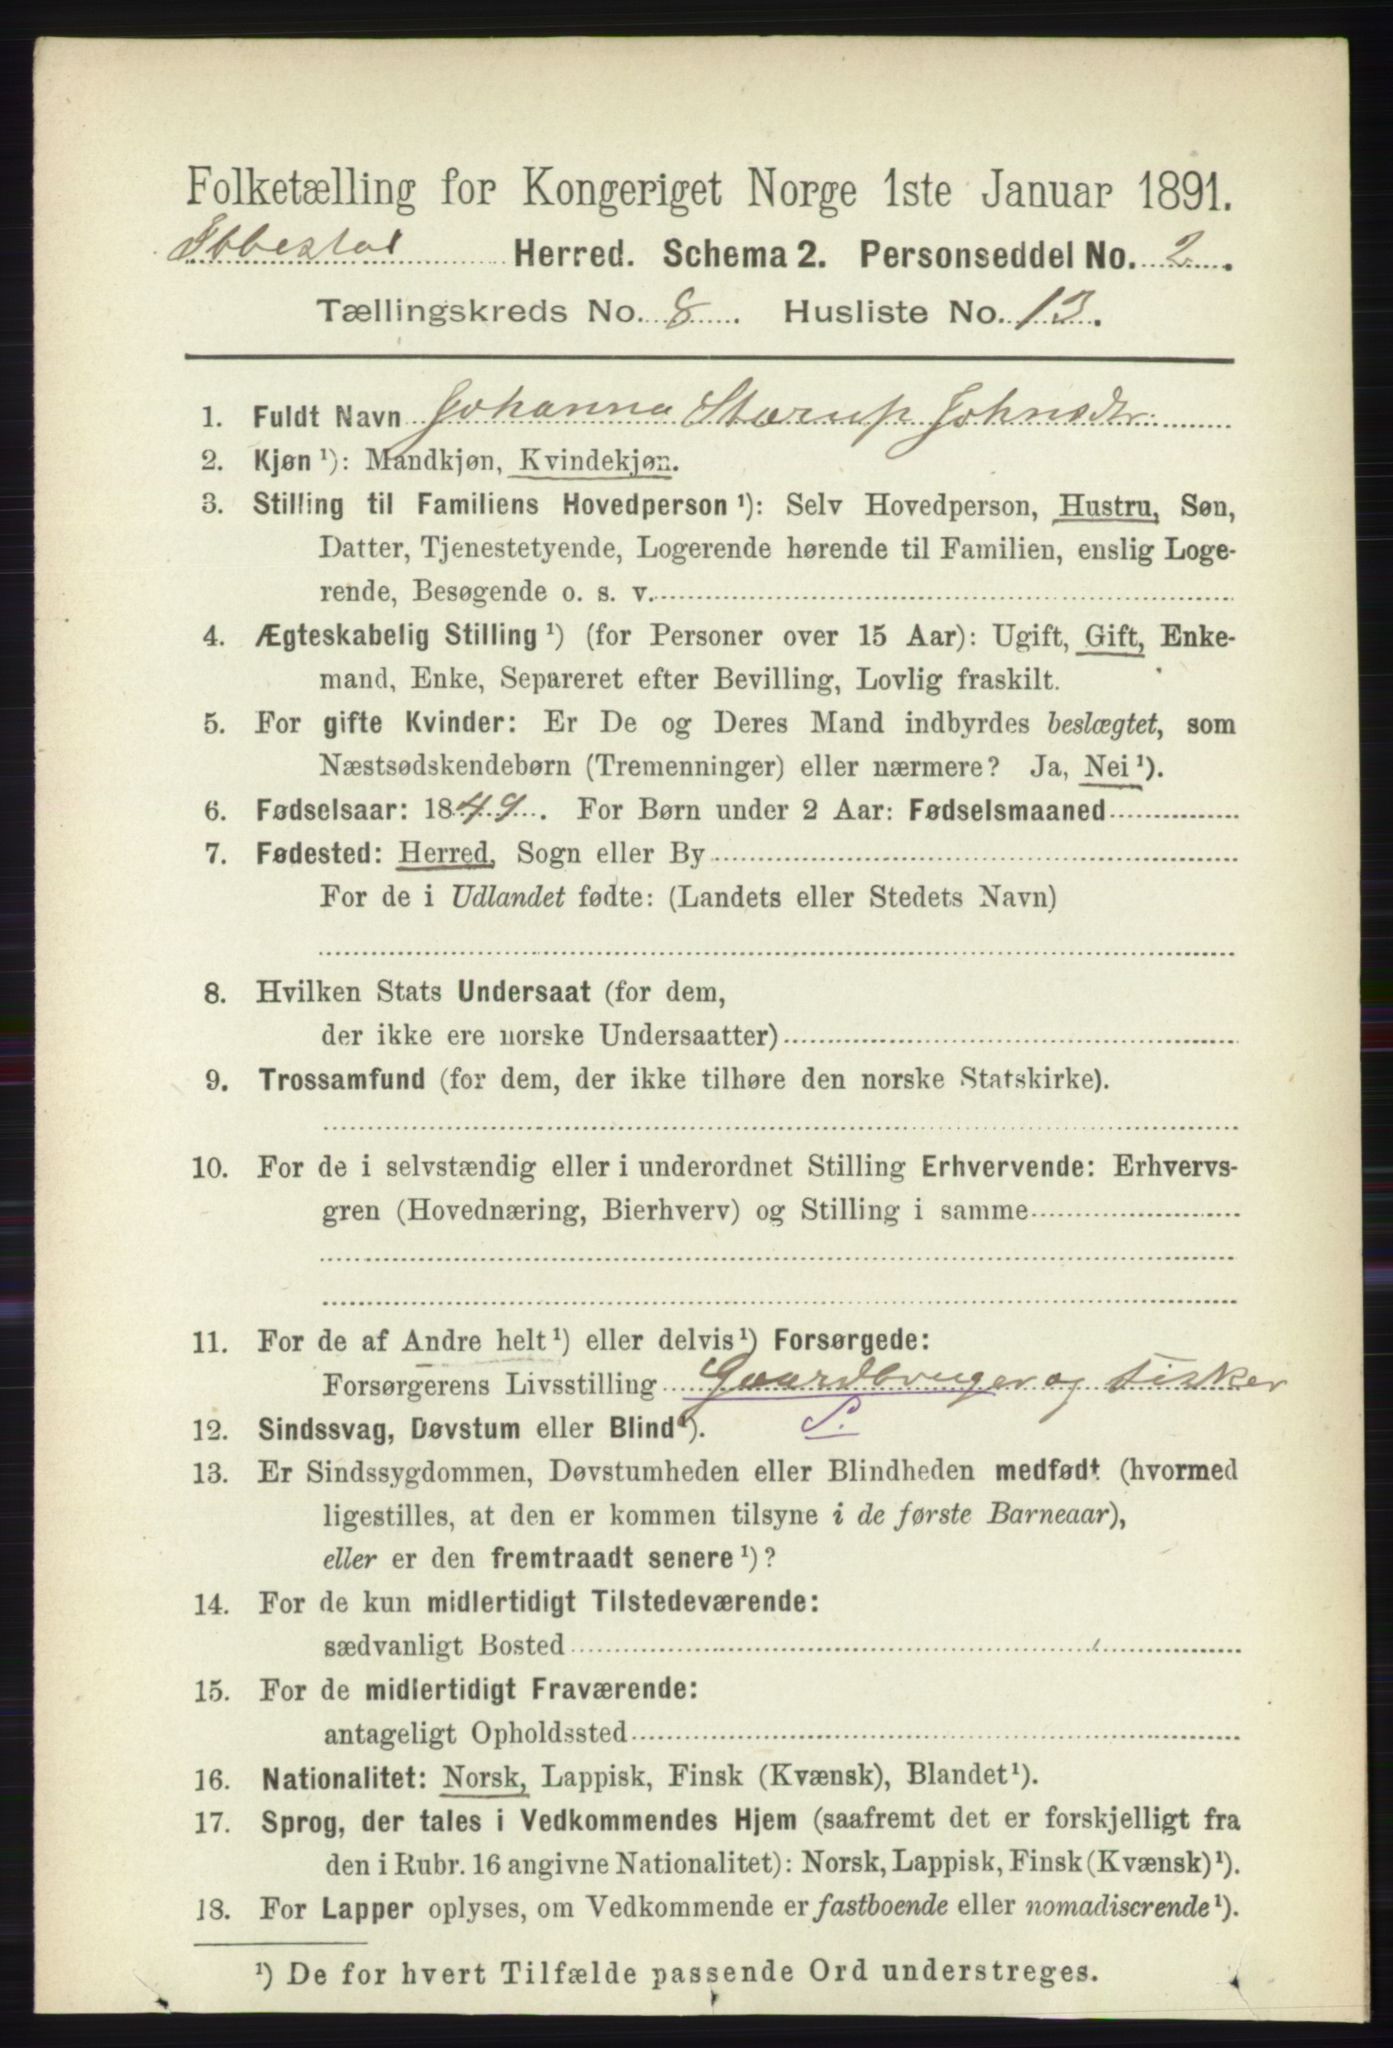 Folketælling for Kongeriget Norge 1ste Januar 1891.
Ibbestad Herred. Schema 2. Personseddel No. 2.
Tællingskreds No. 8. Husliste No. 13.
1. Fuldt Navn Johanna Størup Johnsdtr.
2. Kjøn ¹): Mandkjøn, Kvindekjøn.
3. Stilling til Familiens Hovedperson ¹): Selv Hovedperson, Hustru, Søn,
Datter, Tjenestetyende, Logerende hørende til Familien, enslig Loge-
rende, Besøgende o. s. v.
4. Ægteskabelig Stilling ¹) (for Personer over 15 Aar): Ugift, Gift, Enke-
mand, Enke, Separeret efter Bevilling, Lovlig fraskilt.
5. For gifte Kvinder: Er De og Deres Mand indbyrdes beslægtet, som
Næstsødskendebørn (Tremenninger) eller nærmere? Ja, Nei ¹).
6. Fødselsaar: 1849. For Børn under 2 Aar: Fødselsmaaned
7. Fødested: Herred, Sogn eller By
For de i Udlandet fødte: (Landets eller Stedets Navn)
8. Hvilken Stats Undersaat (for dem,
der ikke ere norske Undersaatter)
9. Trossamfund (for dem, der ikke tilhøre den norske Statskirke).
10. For de i selvstændig eller i underordnet Stilling Erhvervende: Erhvervs-
gren (Hovednæring, Bierhverv) og Stilling i samme
11. For de af Andre helt ¹) eller delvis ¹) Forsørgede:
Forsørgerens Livsstilling Gaardbruger og Fisker
12. Sindssvag, Døvstum eller Blind ¹). S.
13. Er Sindssygdommen, Døvstumheden eller Blindheden medfødt (hvormed
ligestilles, at den er kommen tilsyne i de første Barneaar),
eller er den fremtraadt senere ¹)?
14. For de kun midlertidigt Tilstedeværende:
sædvanligt Bosted
15. For de midlertidigt Fraværende:
antageligt Opholdssted
16. Nationalitet: Norsk, Lappisk, Finsk (Kvænsk), Blandet ¹).
17. Sprog, der tales i Vedkommendes Hjem (saafremt det er forskjelligt fra
den i Rubr. 16 angivne Nationalitet): Norsk, Lappisk, Finsk (Kvænsk) ¹).
18. For Lapper oplyses, om Vedkommende er fastboende eller nomadiserende ¹).
¹) De for hvert Tilfælde passende Ord understreges.